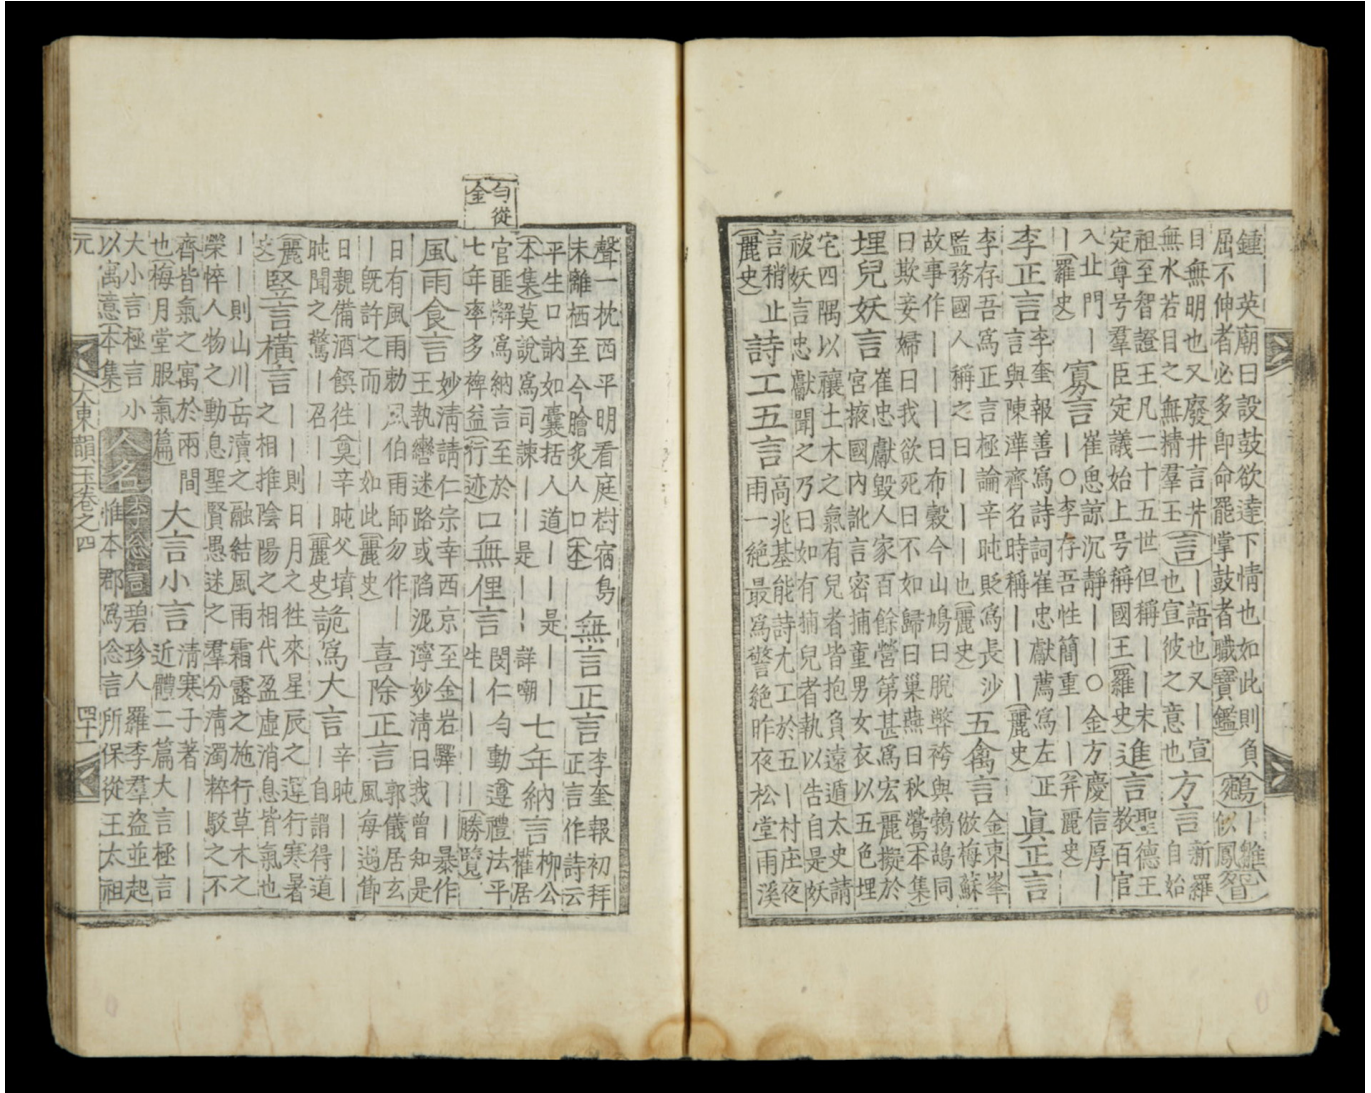 鍾｜英廟曰設鼓欲達下情也如此則負
屈不伸者必多即命罷掌鼓者職(寶鑑)
(鵷)
鳥｜雛
似鳳
(眢)
目無明也又廢井言井
無水若目之無精羣玉
(言)
｜語也又｜宣
也宣彼之意也
方言
新羅
自始
祖至智證王凡二十五世但稱｜｜末
定尊号羣臣定議始上号稱國王(羅史)
進言
聖德王
教百官
入止門｜
｜(羅史)
寡言
崔思諒沉靜｜｜○金方慶信厚｜
｜○李存吾性簡重｜｜(幷麗史)
李正言
李奎報善爲詩詞崔忠獻薦爲左正
言與陳澕齊名時稱｜｜｜(麗史)
眞正言
李存吾爲正言極論辛旽貶爲長沙
監務國人稱之曰｜｜｜也(麗史)
五禽言
金東峯
倣梅蘇
故事作｜｜｜曰布穀今山鳩曰脫弊袴與鵓鴣同
曰欺妾婦曰我欲死曰不如歸曰巢燕曰秋鶯(本集)
埋兒妖言
崔忠獻毀人家百餘營第甚爲宏麗擬於
宮掖國內訛言密捕童男女衣以五色埋
宅四隅以禳土木之氣有兒者皆抱負遠遁太史請
祓妖言忠獻聞之乃曰如有捕兒者執以告自是妖
言稍止
(麗史)
詩工五言
高兆基能詩尤工於五｜村庄夜
雨一絶最爲警絶昨夜松堂雨溪
聲一枕西平明看庭樹宿鳥
未離栖至今膾炙人口(本)
無言正言
李奎報初拜
正言作詩云
平生口訥如囊括人道｜｜是｜｜
(本集)莫說爲司諫｜｜是｜｜詳嘲
七年納言
柳公
權居
官匪懈爲納言至於
七年率多裨益(行迹)
口無俚言
閔仁勻動遵禮法平
生｜｜｜｜(勝覽)
匀從
金
風雨食言
妙淸請仁宗幸西京至金岩驛｜｜暴作
王執轡迷路或陷泥濘妙淸曰我曾知是
日有風雨勅風伯雨師勿作｜
｜旣許之而｜｜如此(麗史)
喜除正言
郭儀居玄
風每過節
日親備酒饌徃奠辛旽父墳｜｜｜｜
旽聞之驚｜召｜｜｜(麗史)
詭爲大言
辛旽｜｜｜｜
｜自謂得道
(麗
史)
竪言橫言
｜｜｜則日月之徃來星辰之運行寒暑
之相推陰陽之相代盈虛消息皆氣也
｜｜則山川岳瀆之融結風雨霜露之施行草木之
榮悴人物之動息聖賢愚迷之羣分淸濁粹駁之不
齊皆氣之寓於兩間
也梅月堂服氣(篇)
大言小言
淸寒子著｜｜｜｜
近體二篇大言極言
大小言極言小
以寓意(本集)
人名
李忩言
碧珍人羅季羣盜並起
惟本郡爲念言所保從王太祖
元
大東韻玉卷之四
四十二